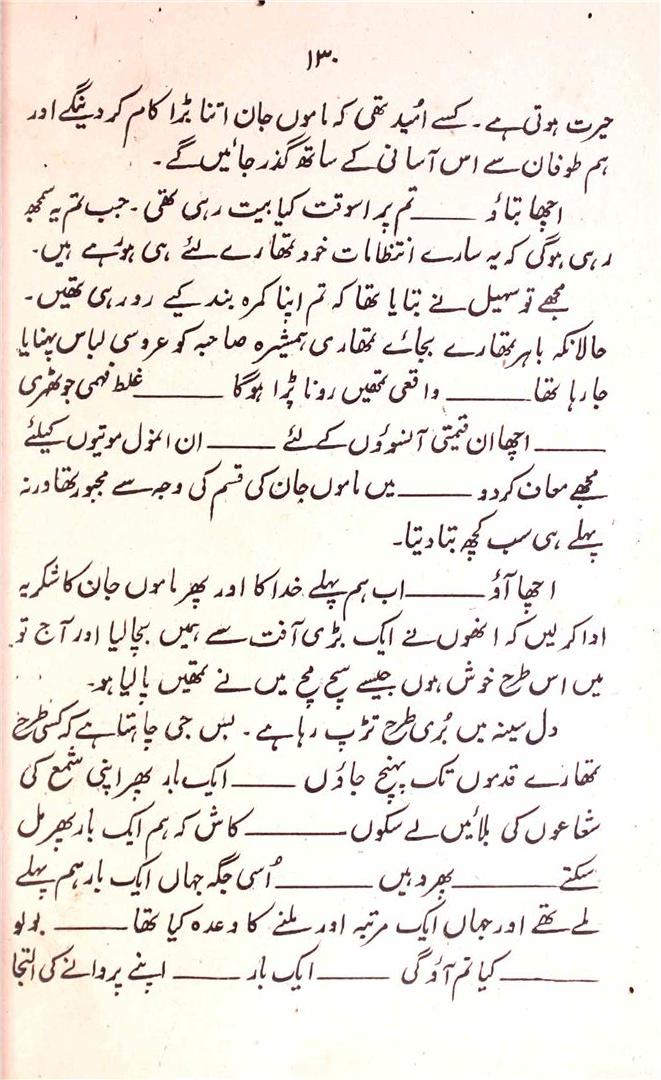 ۱۳۰
حیرت ہوتی ہے۔ کسے اُمید تھی کہ ماموں جان اتنا بڑا کام کر دینگے اور
ہم طوفان سے اس آسانی کے ساتھ گذر جائیں گے۔
اچھا بتاؤ ——— تم پر اسوقت کیا بیت رہی تھی۔ جب تم یہ سمجھ
رہی ہوگی کہ یہ سارے انتظامات خود تمھارے لئے ہی ہو رہے ہیں۔
مجھے تو سہیل نے بتایا تھا کہ تم اپنا کمرہ بند کیے رو رہی تھیں۔
حالانکہ باہر تمھارے بجائے تمھاری ہمشیرہ صاحبہ کو عروسی لباس پہنایا
جا رہا تھا ——— واقعی تمھیں رونا پڑا ہوگا ——— غلط فہمی جو ٹھہری
——— اچھا ان قیمتی آنسوؤں کے لئے ——— ان انمول موتیوں کیلئے
مجھے معاف کر دو ——— میں ماموں جان کی قسم کی وجہ سے مجبور تھا ورنہ
پہلے ہی سب کچھ بتا دیتا۔
اچھا آؤ ——— اب ہم پہلے خدا کا اور پھر ماموں جان کا شکریہ
ادا کر لیں کہ انھوں نے ایک بڑی آفت سے ہمیں بچا لیا اور آج تو
میں اس طرح خوش ہوں جیسے سچ مچ میں نے تمھیں پا لیا ہو۔
دل سینہ میں بُری طرح تڑپ رہا ہے۔ بس جی چاہتا ہے کہ کسی طرح
تمھارے قدموں تک پہنچ جاؤں ——— ایک بار پھر اپنی شمع کی
شعاعوں کی بلائیں لے سکوں ——— کاش کہ ہم ایک بار پھر مل
سکتے ——— پھر وہیں ——— اُسی جگہ جہاں ایک بار ہم پہلے
ملے تھے اور جہاں ایک مرتبہ اور ملنے کا وعدہ کیا تھا ——— بولو
——— کیا تم آؤ گی ——— ایک بار ——— اپنے پروانے کی التجا